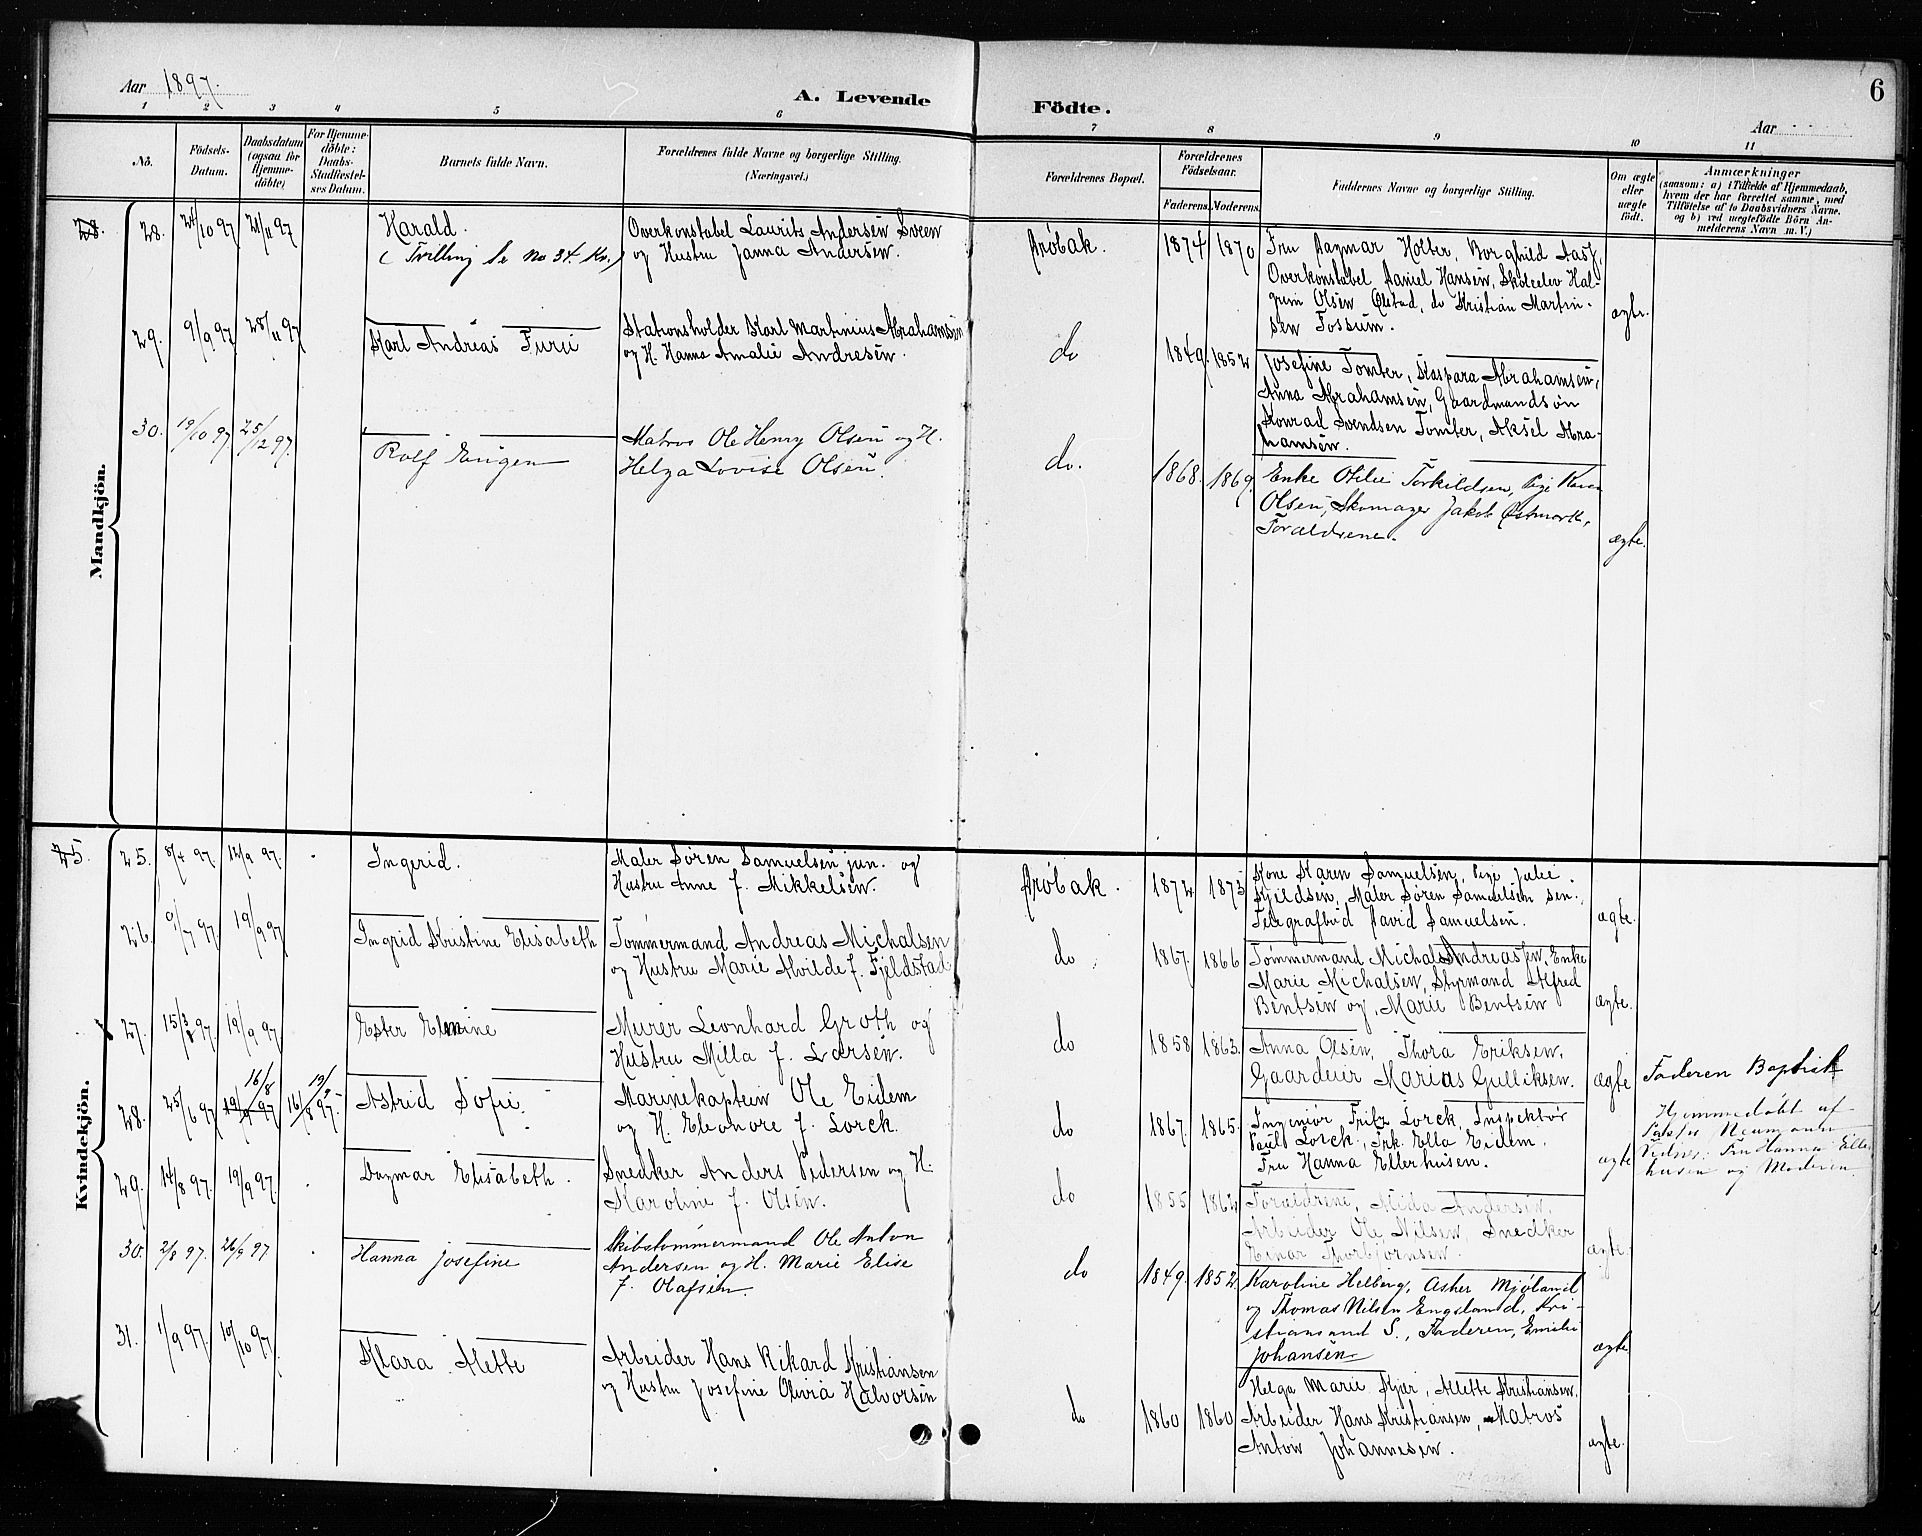 Aar 1897.
A. Levende
Födte.
Aar
6
1 2 3 4 5 6 7 8 9 10 11
No.
Födsels-Datum.
Daabsdatum (ogsaa for Hjemme-döbte)
For Hjemme-döbte: Daabs-Stadfæstel-ses Datum.
Barnets fulde Navn.
Forældrenes fulde Navne og borgerlige Stilling. (Næringsvei.)
Forældrenes Bopæl.
Forældrenes Födselsaar.
Faderens. Moderens.
Faddernes Navne og borgerlige Stilling.
Om ægte eller uægte födt.
Anmærkninger
(saasom: a) i Tilfælde af Hjemmedaab,
hvem der har forrettet samme, med
Tilföielse af to Daabsvidners Navne.
og b) ved uegtefödte Börn An-
melderens Navn m. V.)
Mandkjön.
28. 28. 24/10 97 21/11 97
Harald.
(Tvilling se No 34. Kv.)
Overkonstabel Laurits Andersen Sveen
og Hustru Janna Andersen.
Drøbak. 1874 1870
Fru Dagmar Holter, Borghild Aas,
Overkonstabel Daniel Hansen, Skoleelev Hal-
grim Olsen Ølstad, do Kristian Martin-
sen Fossum.
ægte.
29. 9/9 97 28/11 97
Karl Andreas Furu
Stationsholder Karl Martinius Abrahamsen
og H. Hanna Amalie Andresen.
do 1849. 1852
Josefine Tomter, Kaspara Abrahamsen,
Anna Abrahamsen, Gaardmandsøn
Konrad Svendsen Tomter, Aksel Abra-
hamsen.
30. 19/10 97 25/12 97.
Rolf Eugen
Matros Ole Henry Olsen og H.
Helga Lovise Olsen.
do. 1868. 1869.
Enke Otilie Torkildsen, Pige Karen
Olsen, Skomager Jakob Østmork,
Forældrene.
ægte.
Kvindekjön.
25. 25. 8/4 97. 12/9 97.
Ingerid.
Maler Søren Samuelsen jun. og
Hustru Anne f. Mikkelsen.
Drøbak. 1872 1873
Kone Karen Samuelsen, Pige Julie
Kjeldsen, Maler Søren Samuelsen sen.,
Telegrafbud David Samuelsen.
ægte.
26. 9/7 97 19/9 97
Ingrid Kristine Elisabeth
Tømmermand Andreas Michalsen
og Hustru Marie Alvilde f. Fjeldstad
do 1867. 1866
Tømmermand Michal Andreassen, Enke
Marie Michalsen, Styrmand Alfred
Bentsen og Marie Bentsen
ægte.
27. 15/3 97 19/9 97
Ester Elmine
Murer Leonhard Groth og
Hustru Milla f. Larsen.
do 1858 1863.
Anna Olsen, Thora Eriksen,
Gaardeier Marius Gulliksen.
ægte
Faderen Baptist
28. 25/6 97 16/8 19/9 97 19/9 16/8 97.
Astrid Sofie.
Marinekaptein Ole Eidem
og H. Eleonore f. Lorck.
do 1867. 1865.
Ingeniør Fritz Lorck, Inspektør
Paul Lorck, Frk. Ella Eidem.
Fru Hanna Ellerhusen.
ægte
Hjemmedøbt af
Pastor Neumann
Vidner: Fru Hanna Eller-
husen og Moderen.
29. 14/8 97. 19/9 97.
Dagmar Elisabeth.
Snedker Anders Pedersen og H.
Karoline f. Olsen.
do 1855 1862
Forældrene, Alida Andersen,
Arbeider Ole Nilsen, Snedker
Einar Thorbjørnsen.
ægte.
30. 2/8 97. 26/9 97
Hanna Josefine
Skibstømmermand Ole Anton
Andersen og H. Marie Elise
f. Olafsen.
do 1849. 1852.
Karoline Helberg, Asker Mjøland
og Thomas Nilsen Engsland, Kri-
stiansand S., Faderen, Emilie
Johansen
ægte
31. 1/9 97. 10/10 97.
Klara Alette
Arbeider Hans Rikard Kristiansen
og Hustru Josefine Olivia Halvorsen
do 1860 1860
Helga Marie Kjær, Alette Kristiansen.
Arbeider Hans Kristiansen, Matros
Anton Johannesen.
ægte.